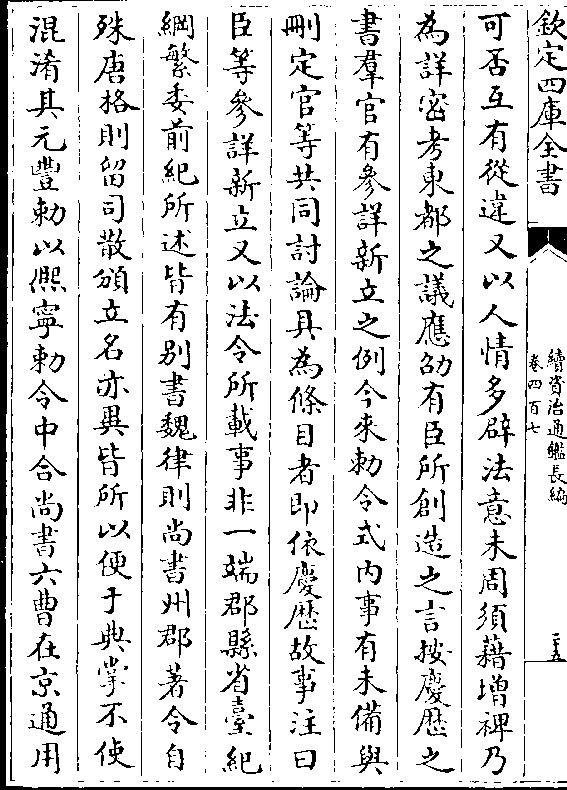 欽定四庫全書
續資治通鑑長編
卷四百七
二十五
可否互有從違又以人情多辟法意未周須藉增裨乃
為詳密考東都之議應劭有臣所創造之言按慶厯之
書羣官有參詳新立之例今來勅令式内事有未備與
刪定官等共同討論具為條目者即依慶厯故事注曰
臣等參詳新立又以法令所載事非一端郡縣省臺紀
綱繁委前紀所述皆有别書魏律則尚書州郡著令自
殊唐格則留司散頒立名亦異皆所以便于典掌不使
混淆其元豐勅以熈寧勅令中合尚書六曹在京通用